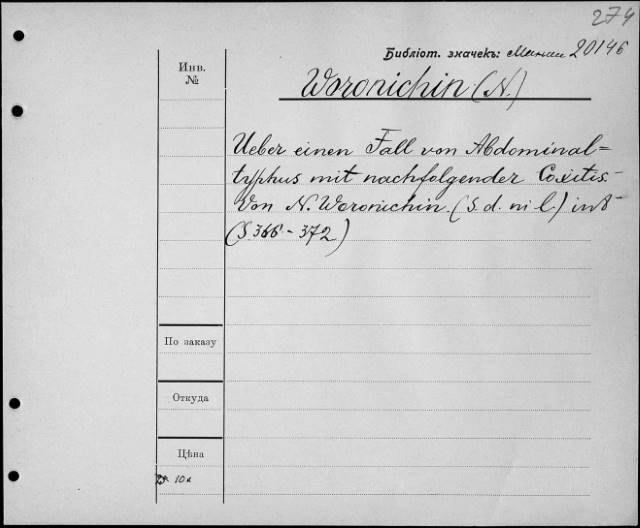 274
Библіот. значекъ: 20146
Инв.
№
Woronichin (N.)
Ueber einen Fall von Abdominal=
typhus mit nachfolgender Coxitis.
Von N. Woronichin. (S. d. ni l.) in 8°
(S 366 - 372)
По заказу
Откуда
Цѣна
10к